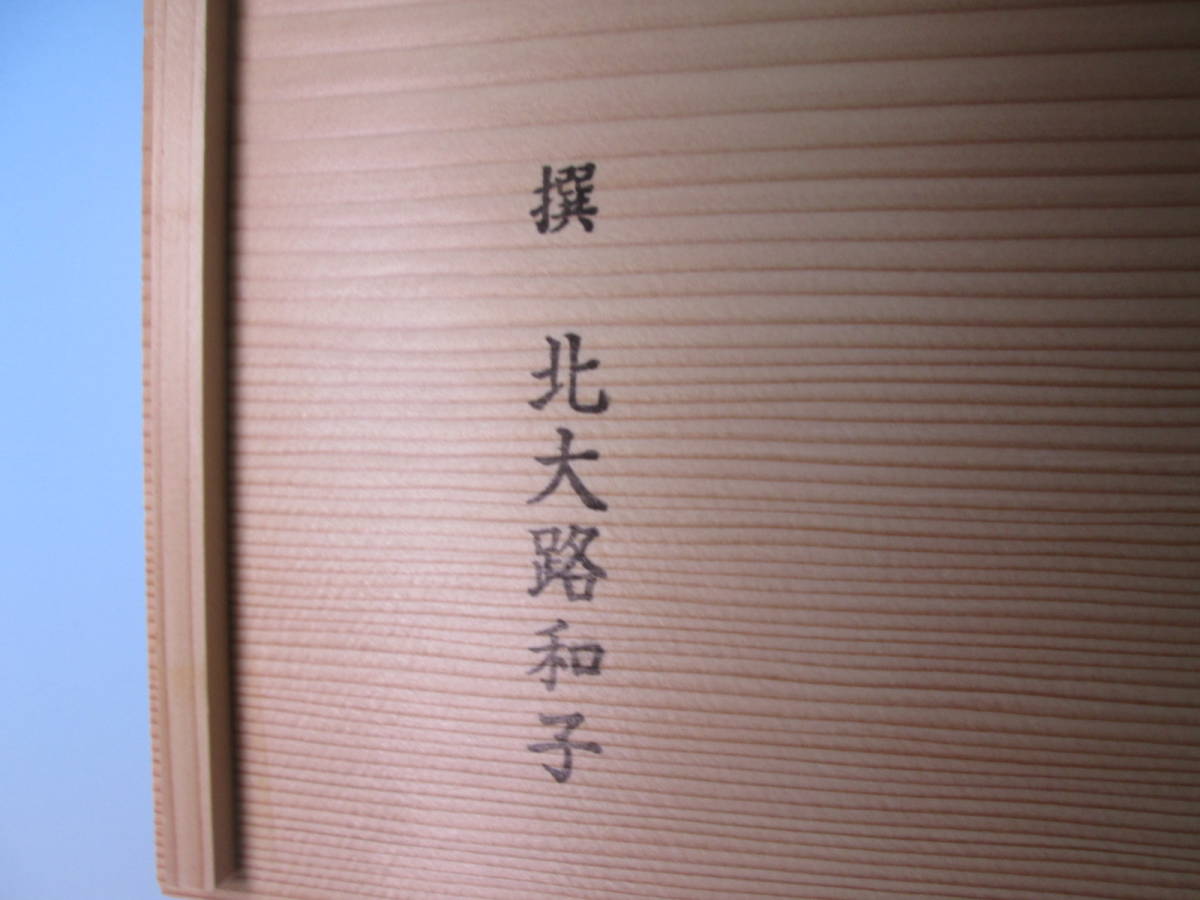 撰 北大路和子